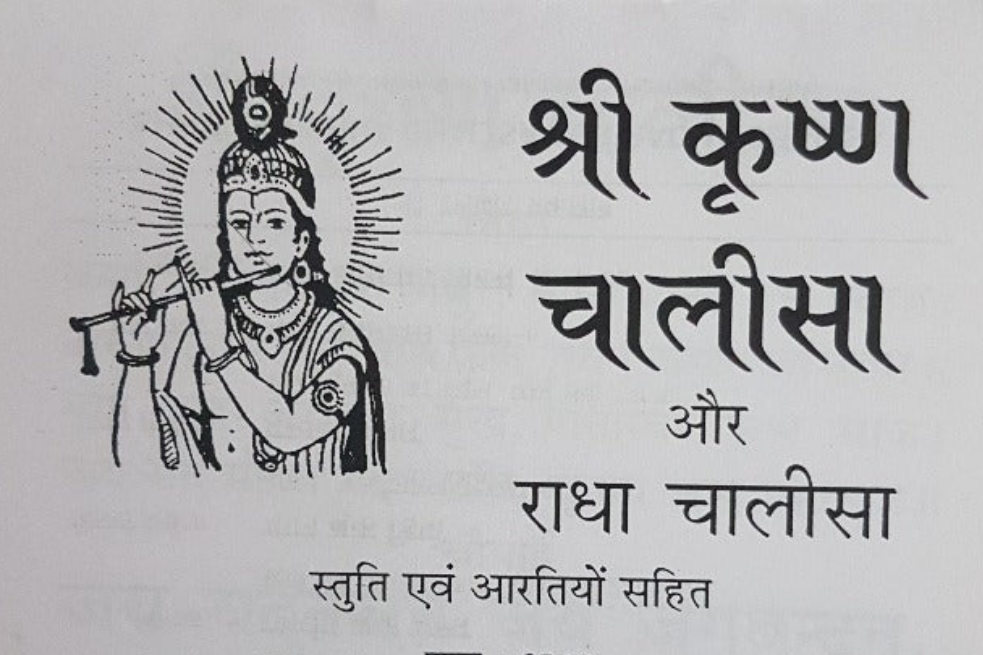 श्री कृष्ण
चालीसा
और
राधा चालीसा
स्तुति एवं आरतियों सहित